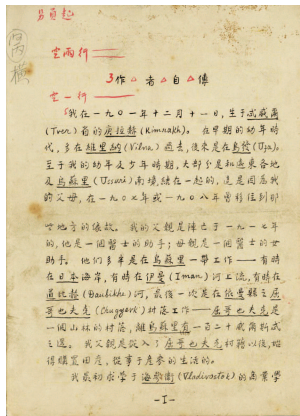 空兩行
作者自傳
空一行
我在一九〇一年十二月十一日,生于忒威爾
(Tver)省的庫拉赫(Kimrakh)。在早期的幼年時
代,多在維里納(Vilna)過去,後來是在烏發(Ufa)。
至于我的幼年及少年時期,大部分是和遠東各地
及烏蘇里(Ussuri)南境緒在一起的,這是因為我
的父母,在一九〇七年或一九〇八年曾移往到那
地方的緣故。我的父親是陣亡于一九一七年
的,他是一個醫士的助手;母親是一個醫士的女
助手。他們多半是在烏蘇里一帶工作——有時
在日本海岸,有時在伊曼(Iman)河上流,有時在
(Daubikhe)河,最後一次是在依曼縣之屈
哥也夫克(Chugyevk)村落工作——屈哥也夫克是
一個山林的村落,離烏蘇里有一百二十俄
之遠。我父親是從入了屈哥也夫克村籍以後,始
得購置田產,從事于產麥的生活的。
我最初求學于海參衛(Vladivostok)的商業學
-1-